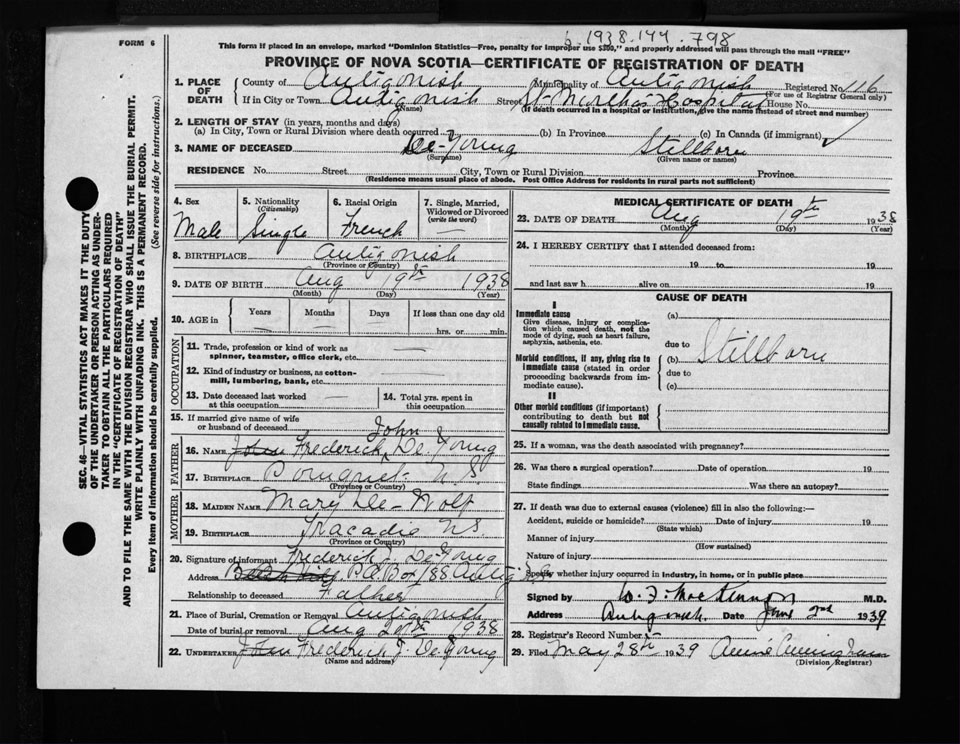 b. 1938.144.798
FORM 6
This form if placed in an envelope, marked "Dominion Statistics—Free, penalty for improper use $300," and properly addressed will pass through the mail "FREE"
PROVINCE OF NOVA SCOTIA—CERTIFICATE OF REGISTRATION OF DEATH
1. PLACE OF DEATH
County of Antigonish (Name) Municipality of Antigonish Registered No. 116 (For use of Registrar General only)
If in City or Town Antigonish Street St Martha's Hospital House No.
(If death occurred in a hospital or institution, give the name instead of street and number)
2. LENGTH OF STAY (in years, months and days)
(a) In City, Town or Rural Division where death occurred (b) In Province (c) In Canada (if immigrant)
3. NAME OF DECEASED De-Young Stillborn
(Surname) (Given name or names)
RESIDENCE No. Street City, Town or Rural Division Province
(Residence means usual place of abode. Post Office Address for residents in rural parts not sufficient)
4. Sex 5. Nationality (Citizenship) 6. Racial Origin 7. Single, Married, Widowed or Divorced (write the word)
Male Single French —
8. BIRTHPLACE Antigonish
(Province or Country)
9. DATE OF BIRTH Aug 9th 1938
(Month) (Day) (Year)
10. AGE in Years Months Days If less than one day old
hrs. or min.
OCCUPATION
11. Trade, profession or kind of work as spinner, teamster, office clerk, etc. —
12. Kind of industry or business, as cotton-mill, lumbering, bank, etc. —
13. Date deceased last worked at this occupation — 14. Total yrs. spent in this occupation
15. If married give name of wife or husband of deceased
FATHER
John
16. NAME John Frederick De Young
17. BIRTHPLACE Pomquet N.S.
(Province or Country)
MOTHER
18. MAIDEN NAME Mary De-Wolf
19. BIRTHPLACE Tracadie NS
(Province or Country)
20. Signature of informant Frederick J. De Young
Address P.O. Box 188 Antigonish
Relationship to deceased Father
21. Place of Burial, Cremation or Removal Antigonish
Date of burial or removal Aug 1938
22. UNDERTAKER John Frederick J. De Young
(Name and address)
MEDICAL CERTIFICATE OF DEATH
23. DATE OF DEATH Aug 19th 1938
(Month) (Day) (Year)
24. I HEREBY CERTIFY that I attended deceased from:
19 to 19
and last saw h alive on 19
CAUSE OF DEATH
I
Immediate cause
Give disease, injury or complication which caused death, not the mode of dying, such as heart failure, asphyxia, asthenia, etc.
(a)
due to
Morbid conditions, if any, giving rise to immediate cause (stated in order proceeding backwards from immediate cause).
(b) Stillborn
due to
(c)
II
Other morbid conditions (if important) contributing to death but not causally related to immediate cause.
25. If a woman, was the death associated with pregnancy?
26. Was there a surgical operation? Date of operation 19
State findings Was there an autopsy?
27. If death was due to external causes (violence) fill in also the following:—
Accident, suicide or homicide? Date of injury 19
(State which)
Manner of injury
(How sustained)
Nature of injury
Specify whether injury occurred in industry, in home, or in public place
Signed by W. F. MacKinnon M.D.
Address Antigonish. Date June 2nd 1939
28. Registrar's Record Number
29. Filed May 28th 1939 Annie Cunningham
(Division Registrar)
SEC. 46—VITAL STATISTICS ACT MAKES IT THE DUTY
OF THE UNDERTAKER OR PERSON ACTING AS UNDER-
TAKER TO OBTAIN ALL THE PARTICULARS REQUIRED
IN THE "CERTIFICATE OF REGISTRATION OF DEATH"
AND TO FILE THE SAME WITH THE DIVISION REGISTRAR WHO SHALL ISSUE THE BURIAL PERMIT.
WRITE PLAINLY WITH UNFADING INK. THIS IS A PERMANENT RECORD.
Every item of information should be carefully supplied. (See reverse side for instructions.)